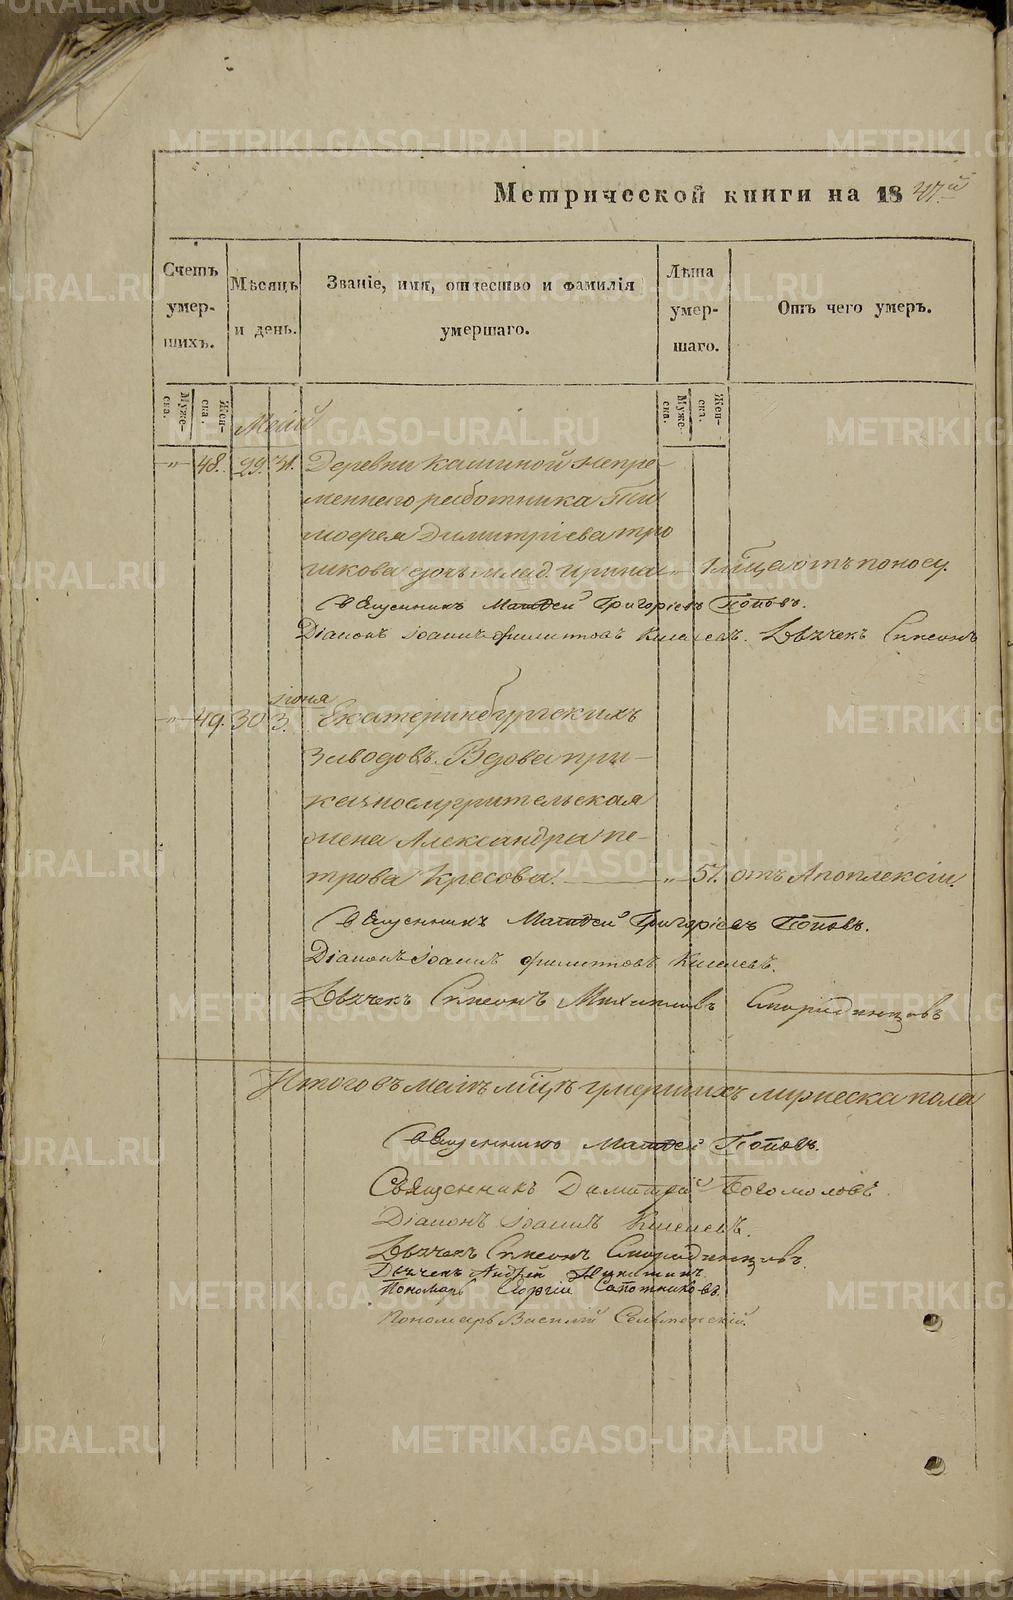 METRIKI.GASO-URAL.RU
Метрической книги на 1847й
Счетъ умер- шихъ.
Мѣсяцъ и день.
Званіе, имя, отчество и фамилія умершаго.
Лѣта умер- шаго.
Отъ чего умеръ.
Муже- ска.
Жен- ска.
Муже- ска.
Жен- ска.
Маій
„ 48. 29. 31. Деревни Калиной непре-
меннаго работника Тим
мофея Димитріева тро
шкова дочь млад. Ирина „ 1 мѣсяца отъ поносу.
Священникъ Матѳей Григоріевъ Поповъ.
Діаконъ Іоаннъ Филиповъ Киселевъ. Дьячекъ Симеонъ
іюня
„ 49. 30 3. Екатеринбургскихъ
Заводовъ. Вдова при-
казнослужительская
жена Александра пе-
трова Кресова. „ 57. отъ Апоплексіи.
Священникъ Матѳей Григоріевъ Поповъ.
Діаконъ Іоаннъ Филиповъ Киселевъ.
Дьячекъ Симеонъ Михаиловъ Смородинцовъ
Итого въ маіѣ мѣцѣ умершихъ мужеска пола
Священникъ Матѳей Поповъ.
Священникъ Димитрій Богомоловъ.
Діаконъ Іоаннъ Киселевъ.
Дьячекъ Симеонъ Смородинцовъ.
Дьячекъ Андрей Никитинъ
Пономарь Георгій Сапожниковъ
Пономарь Василій Сельменскій.